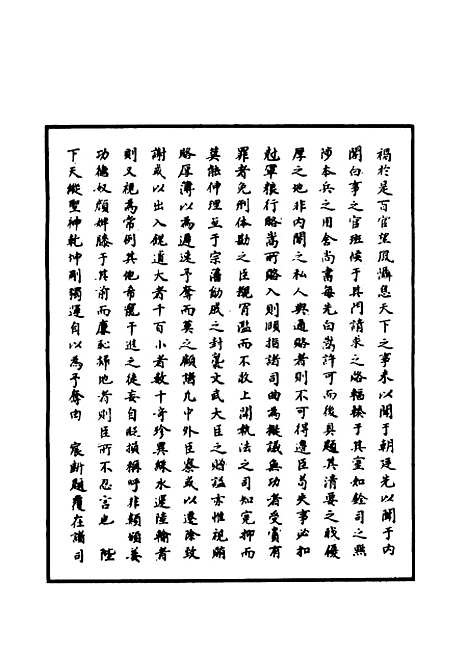 禍於是百官望風懾息天下之事未以聞于朝廷先以聞于内
閣白事之官班候于其門請求之路輻輳于其室如銓司之黜
陟本兵之用舍尚書每先白嵩許可而後具題其清要之職優
厚之地非内閣之私人與通賂者則不可得邊臣茍失事必扣
尅軍糧行賂嵩所賂入則頤指諸司曲為擬議無功者受賞有
罪者免刑体勘之臣親官濫而不敢上聞執法之司知寃抑而
莫能伸理至于宗藩勛戚之封襲文武大臣之贈謚亦惟視賄
賂厚薄以為遲速予奪而莫之顧諸凢中外臣察或以遷除致
謝或以出入銳道大者千百小者數十奇珍異綵水運陸輸者
則又視為常例其他希寵干進之徒妄自貶損稱呼非類頌美
功德奴顔婢膝于其前而廉恥掃地者則臣所不忍言也　陛
下天縱聖神乾坤剛獨運自以為予奪由　宸斷題覆在諸司